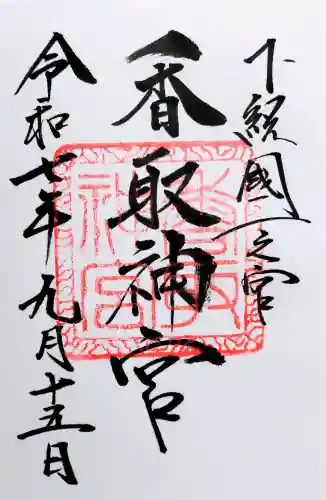 下総國一之宮
香取神宮
令和七年九月十五日
香取神宮